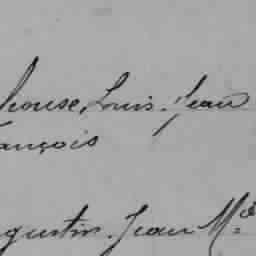 house, Louis. Jean
ançois
gustin. Jean M.ie